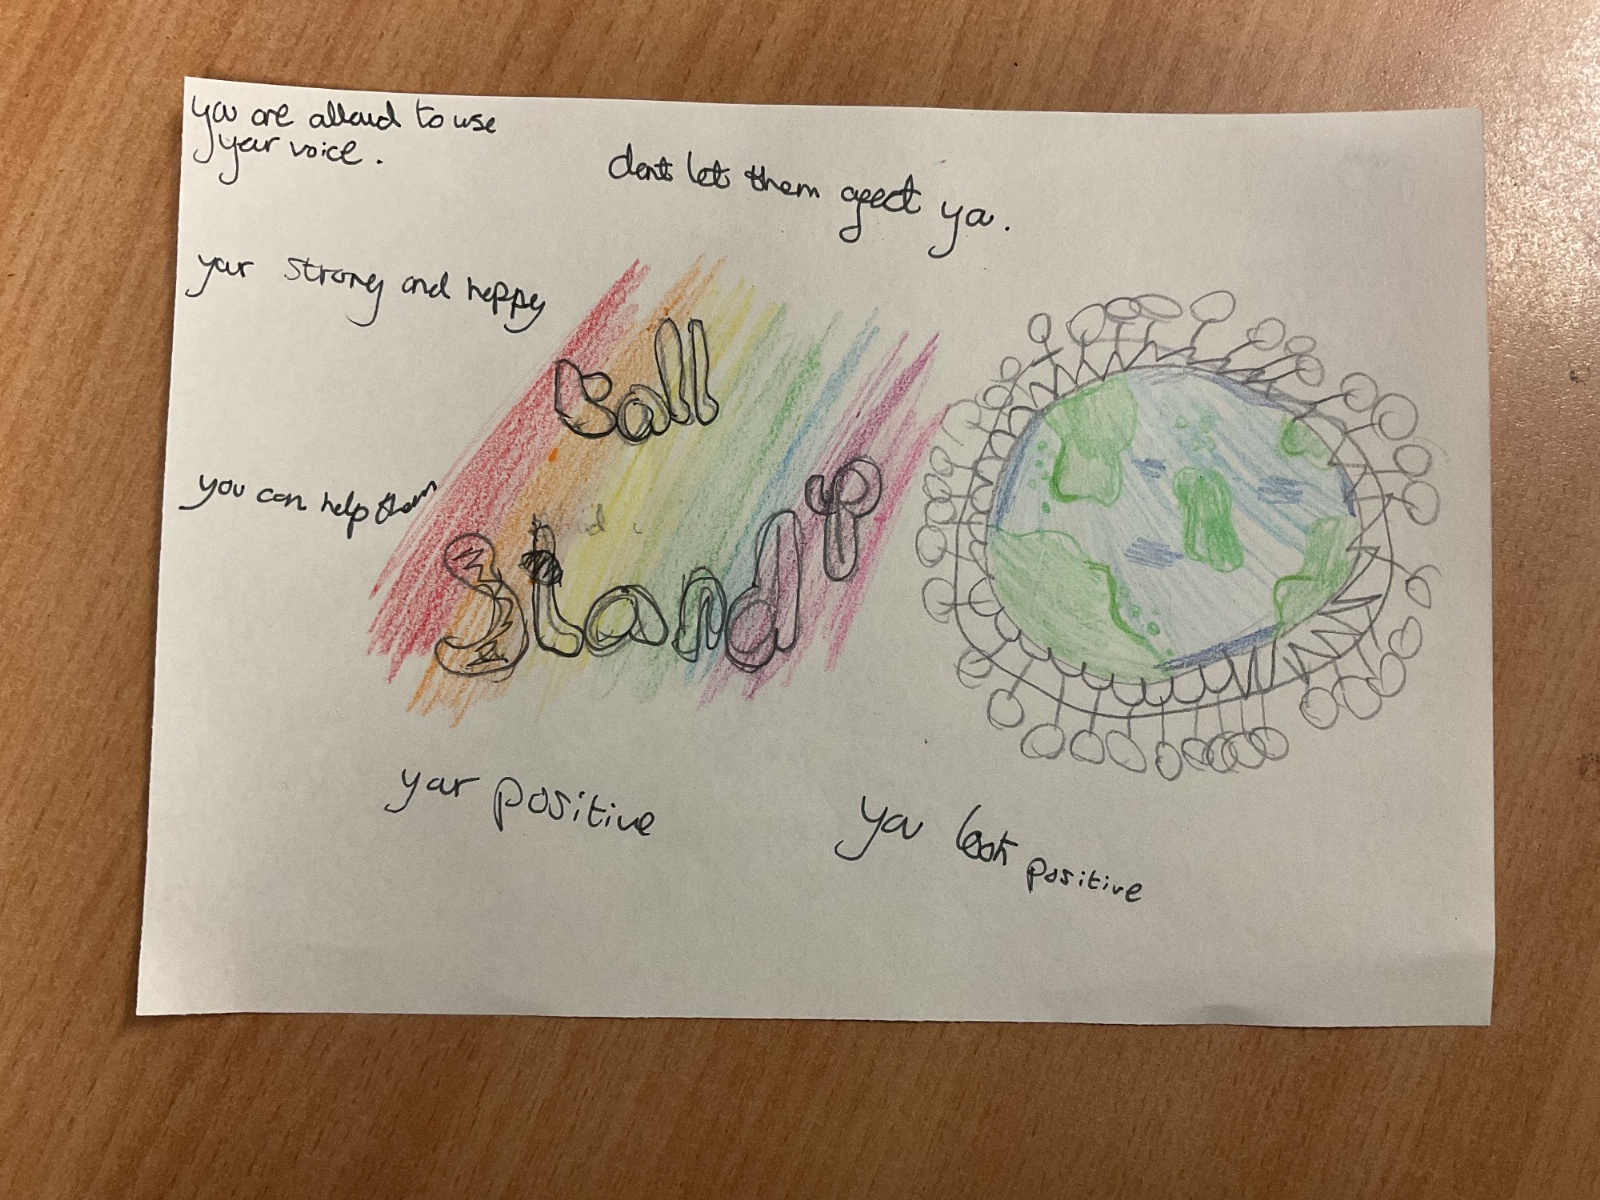 you are alloud to use
your voice.
dont let them afect you.
your strong and happy
Call
you can help them
Stand
your positive
you look positive